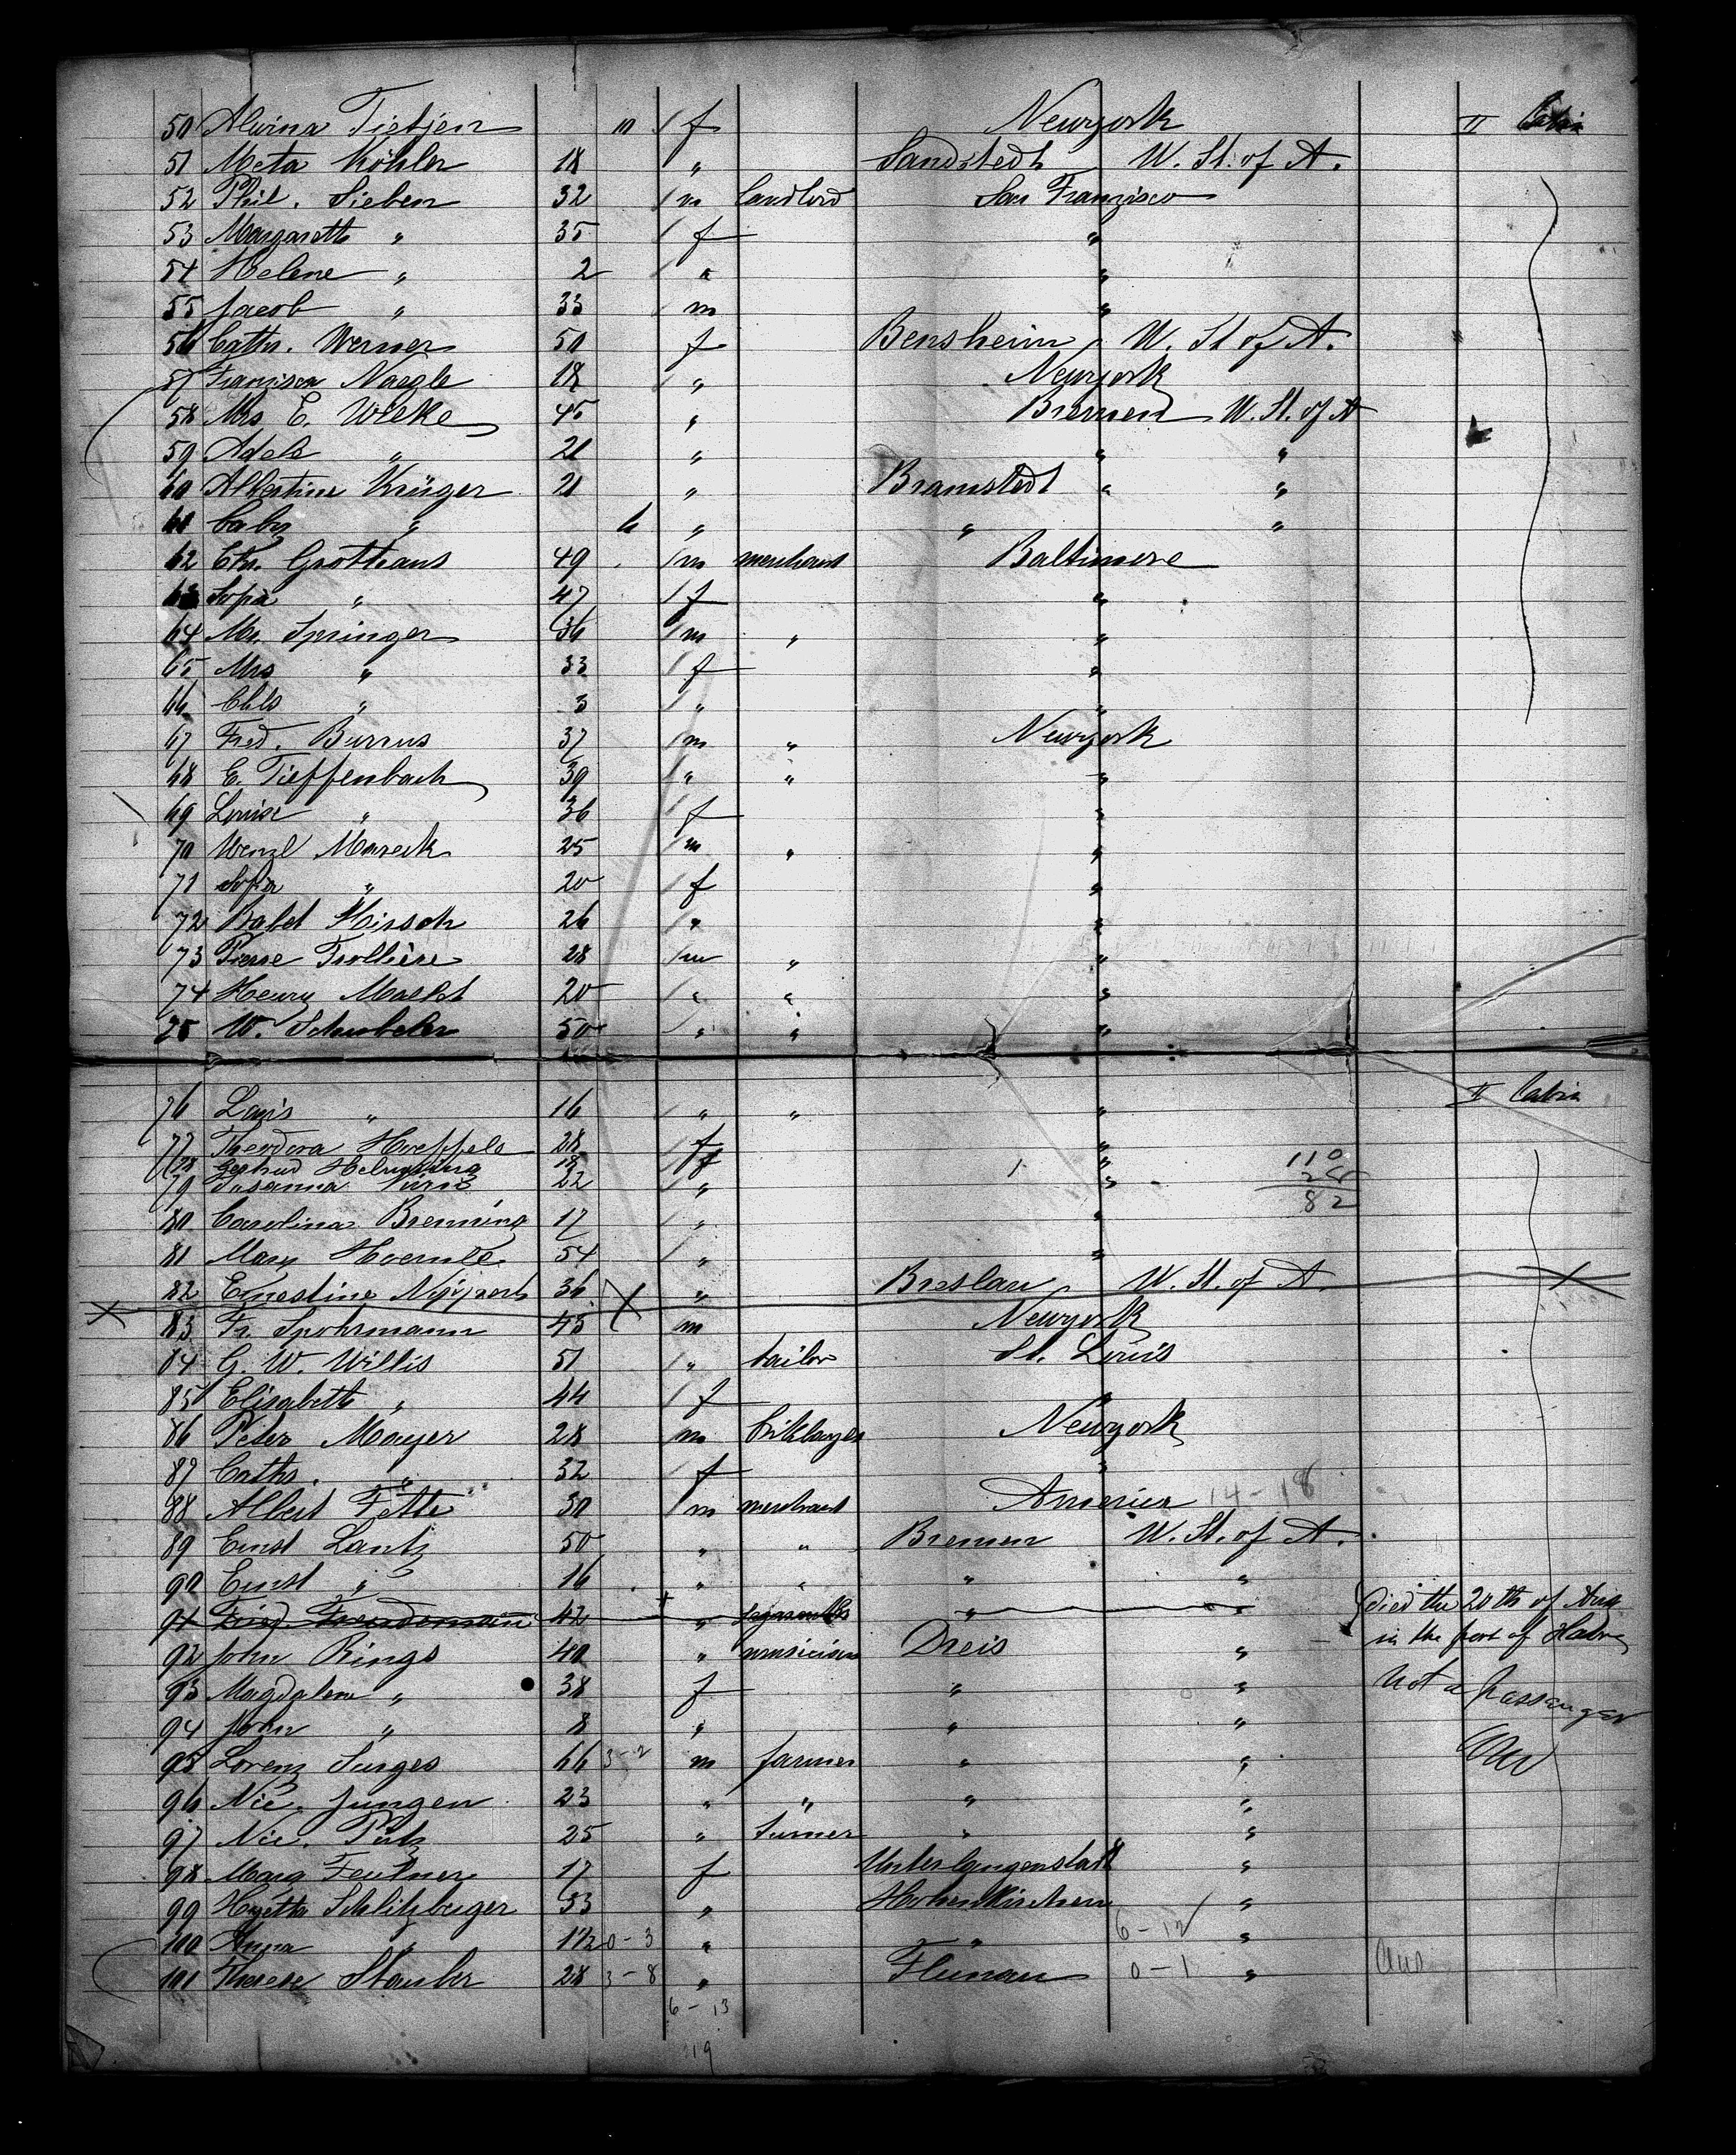 50 Alvina Tietjen 10 / f Newyork II Cabin
51 Meta Köhler 18 " Sandstedt U. St. of A.
52 Phil. Sieben 32 / m Landlord San Franzisco
53 Margareth " 35 / f "
54 Helene " 2 / " "
55 Jacob " 33 / m "
56 Cath. Werner 50 f Bensheim U. St of A.
57 Franzisca Naegle 18 / " Newyork
58 Mrs E. Wilke 45 " Bremen U. St. of A
59 Adele " 21 " " "
60 Albertine Krüger 21 " Bramstedt " "
61 Baby " 6 " " "
62 Chr. Grothaus 49 / m merchant Baltimore
63 Sofia " 47 / f "
64 Mr. Springer 36 / m " "
65 Mrs " 33 / f "
66 Chld " 3 / " "
67 Fred. Burrus 37 / m " Newyork
68 E. Tieffenbach 39 / " " "
69 Louise " 36 / f "
70 Wenzl Mareck 25 / m " "
71 Sofia " 20 / f "
72 Babet Hirsch 26 / " "
73 Pierre Trolliere 28 / m " "
74 Henry Macht 20 / " " "
75 W. Schubeler 50 / " " "
76 Louis " 16 / " " " II Cabin
77 Theodora Hoeffele 28 / f "
78 Gertrud 18 / f "
79 Susanna 22 / " "
110
28
82
80 Carolina Brenning 17 / " "
81 Mary Hoernle 54 / " "
82 Ernestine 36 " Breslau U. St. of A
83 Fr. Spohrmann 45 m Newyork
84 G. W. Willis 51 / " tailor St. Louis
85 Elisabeth " 44 / f "
86 Peter Mayer 28 / m briklayer Newyork
87 Cath. " 32 / f "
88 Albert Fette 30 / m merchant America 14-18
89 Ernst Lantz 50 " " Bremen U. St. of A.
90 Ernst " 16 " " " "
91 Fried. 42 " " died the 20th of Aug
92 John Rings 40 " musician Dreis " in the port of Havre
93 Magdalene " 38 f " " Not a passenger
94 John " 8 " " "
95 Lorenz Surges 66 3-2 m farmer " "
96 Nic. Jungen 23 " " " "
97 Nic. Pütz 25 " turner " "
98 Marg Feulner 17 f Unterlangenstadt "
99 Hyetta Schlitzberger 53 " Hohenkirchen "
100 Anna " 17 0-3 " " 6-12 "
101 Therese Stauber 28 3-8 " 0-1 "
6-13
19